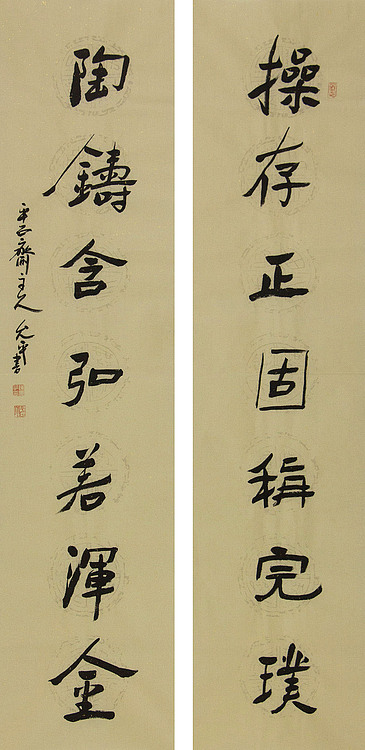 操存正固稱完璞
陶鑄含弘若渾金
平正齋主人允平書